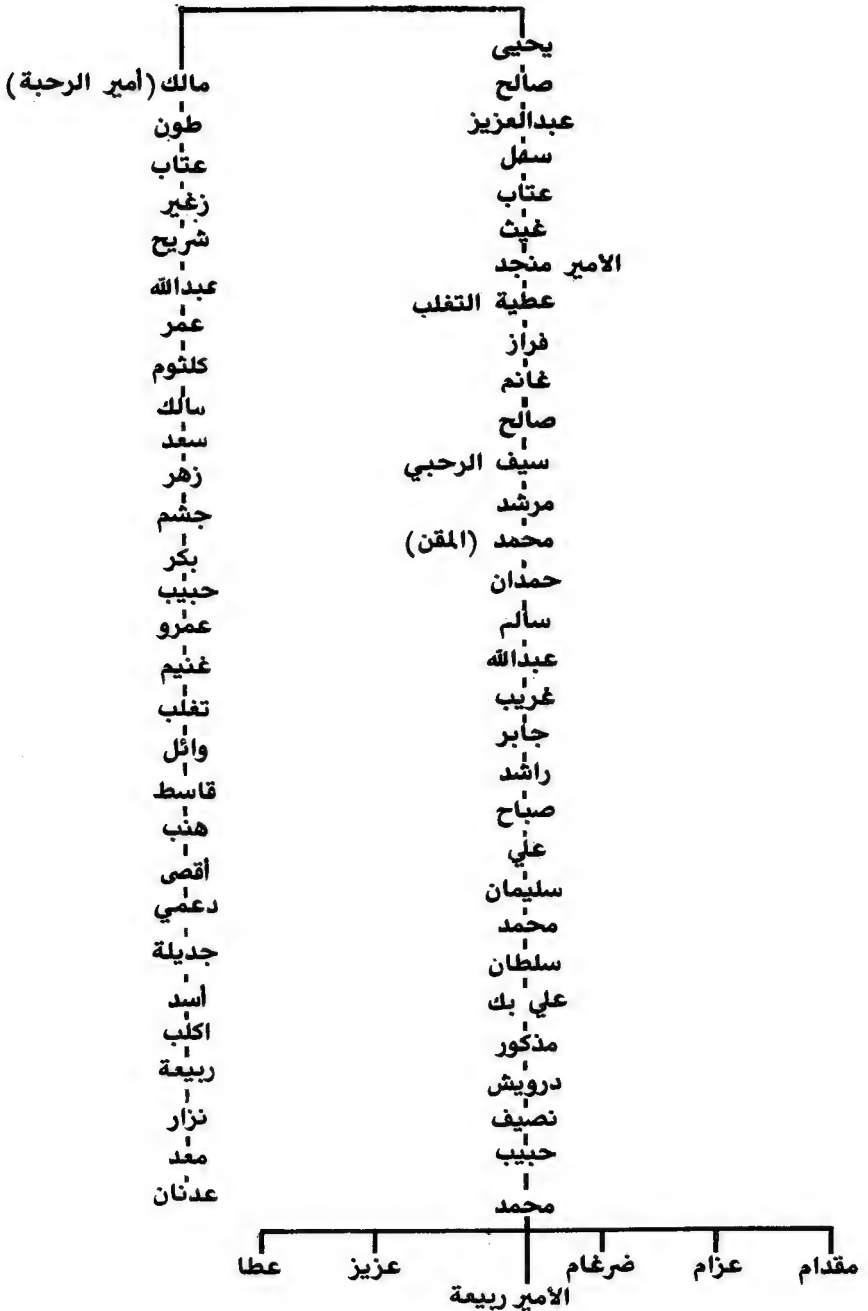 يحيى
صالح
عبدالعزيز
سهل
عتاب
غيث
الأمير منجد
عطية التغلب
فراز
غانم
صالح
سيف الرحبي
مرشد
محمد (المقن)
حمدان
سالم
عبدالله
غريب
جابر
راشد
صباح
علي
سليمان
محمد
سلطان
علي بك
مذكور
درويش
نصيف
حبيب
محمد
مالك (أمير الرحبة)
طون
عتاب
زغير
شريح
عبدالله
عمر
كلثوم
مالك
سعد
زهر
جشم
بكر
حبيب
عمرو
غنيم
تغلب
وائل
قاسط
هنب
أقصى
دعمي
جديلة
أسد
اكلب
ربيعة
نزار
معد
عدنان
مقدام عزام ضرغام عزيز عطا
الأمير ربيعة